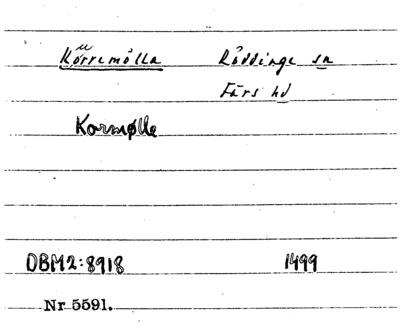 Kürremölla Röddinge sn
Färs hd
Kormølle
DBM2:8918 1499
Nr 5591.